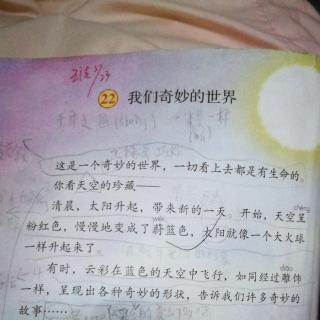 22 我们奇妙的世界
这是一个奇妙的世界，一切看上去都是有生命的。
你看天空的珍藏——
chéng
清晨，太阳升起，带来新的一天。开始，天空呈
wèi
粉红色，慢慢地变成了蔚蓝色，太阳就像一个大火球
一样升起来了。
diāo
有时，云彩在蓝色的天空中飞行，如同经过雕饰
一样，呈现出各种奇妙的形状，告诉我们许多奇妙的
故事……